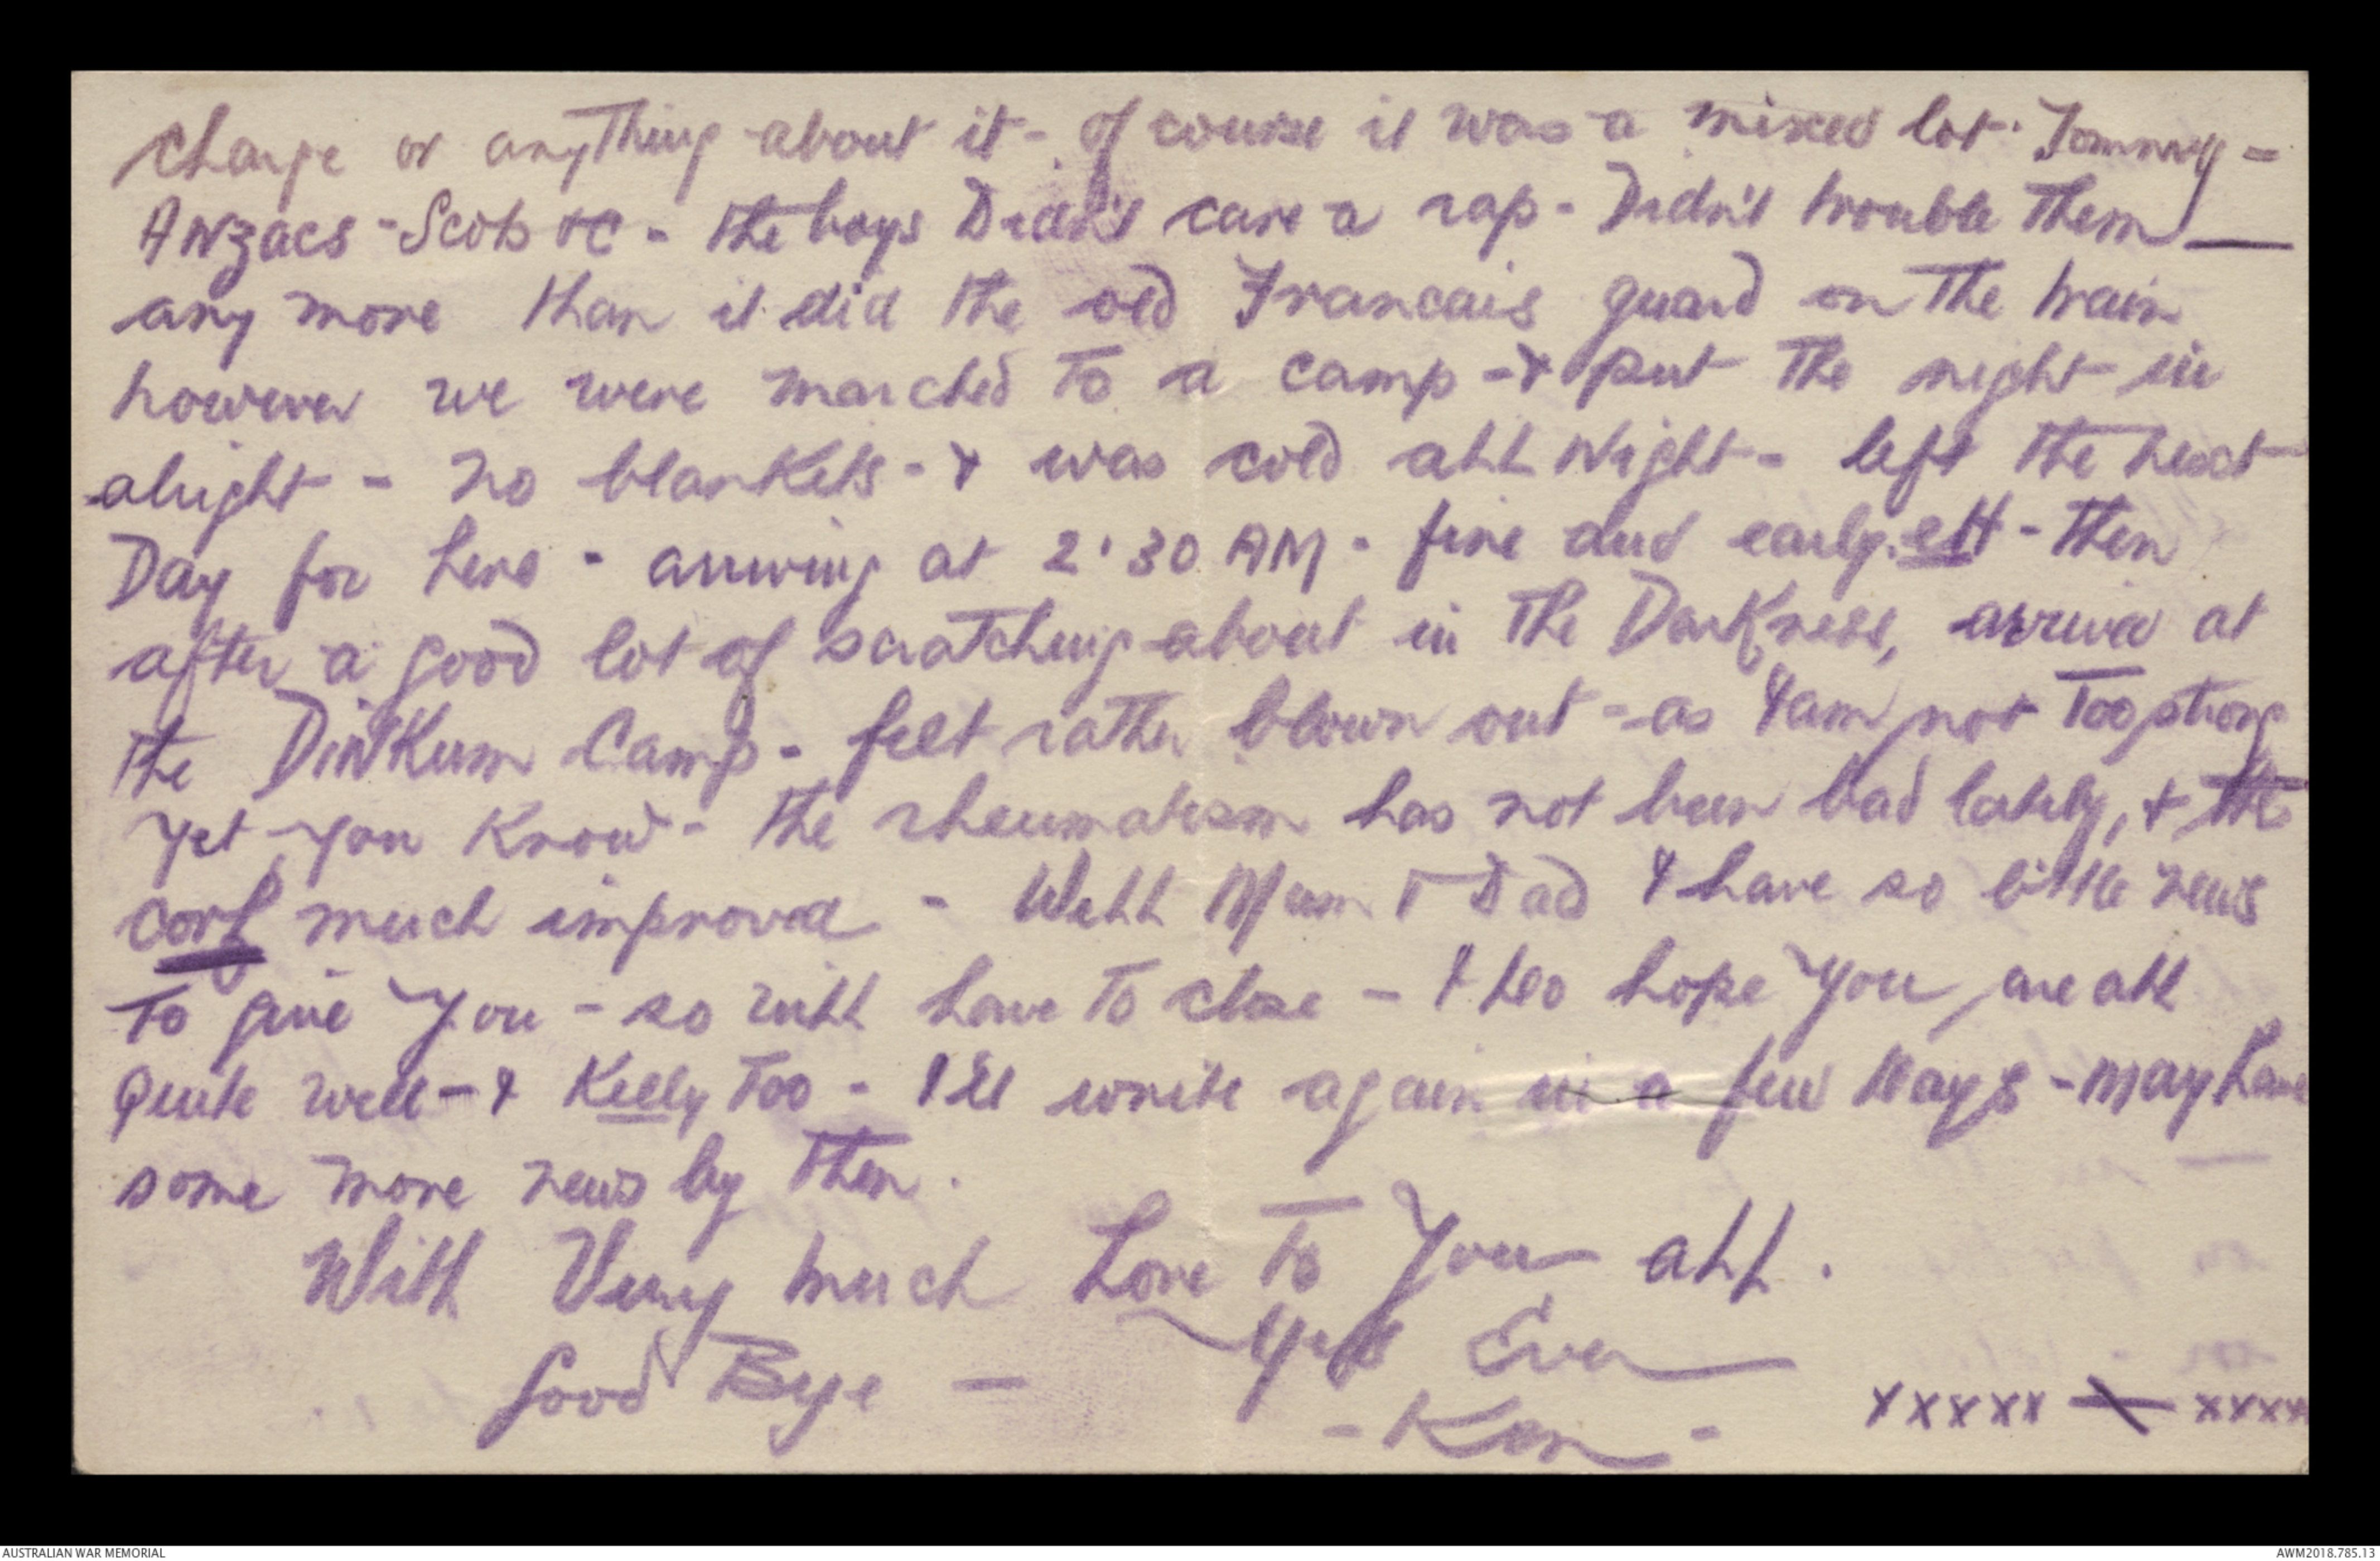 charge or anything about it - of course it was a mixed lot. Tommy -
ANZacs - Scots &c - the boys Didn't care a rap - Didn't trouble them —
any more than it did the old Francais guard on the train
however we were marched to a camp - & put the night in
alright - no blankets - & was cold all Night - left the next
Day for here - arriving at 2.30 AM - fine and early. eh - then
after a good lot of scratching about in the DarKness, arrived at
the DinKum Camp - felt rather blown out - as I am not too strong
yet you Know - the rheumatism has not been bad lately, & the
much improved - Well Mum & Dad I have so little news
to give you - so will have to close - I do hope you are all
Quite well - & Kelly too - I'll write again in a few Days - may have
some more news by then.
With Very much Love To You all.
Good Bye — Yrs Ever
- Ken - xxxxx — xxxx
AUSTRALIAN WAR MEMORIAL
AWM2018.785.13